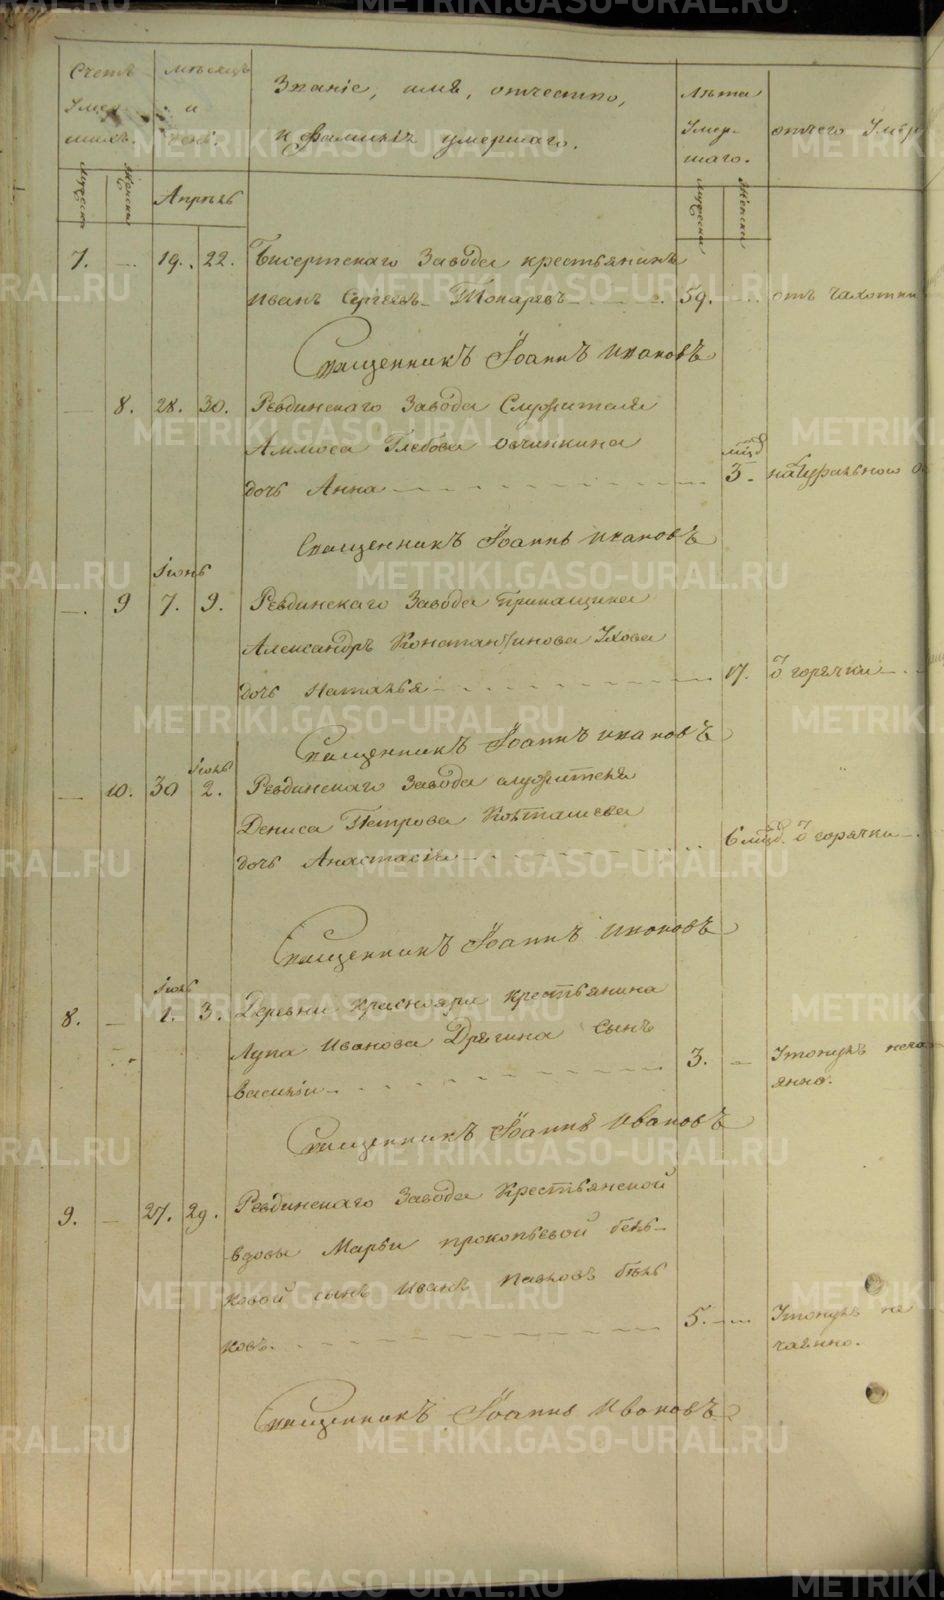 Счетъ Умер- шихъ.
мѣсяцъ и чсл.
Званіе, имя, отчество,
и фамилія умершаго.
Лѣта Умер- шаго.
отчего Умер
Мужеска
Женска
Апрѣль
Мужеска
Женска
7. — 19. 22. Бисертскаго Завода крестьянинъ
Иванъ Сергѣевъ Токаревъ 59. отъ чахотки
Священникъ Іоаннъ Ивановъ
— 8. 28. 30. Ревдинскаго Завода Служителя
Аммоса Глебова Овчинкина
дочь Анна 3. натуральной о
Священникъ Іоаннъ Ивановъ
Іюнь
—. 9 7. 9. Ревдинскаго Завода Прикащика
Александръ Константинова Ухова
дочь Наталья 17. ѿ горячки
Священникъ Іоаннъ Ивановъ
Іюнь
— 10. 30 2. Ревдинскаго Завода служителя
Дениса Петрова
дочь Анастасія 6 мцд. ѿ горячки
Священникъ Іоаннъ Ивановъ
Іюль
8. — 1. 3. Деревни Краснояра крестьянина
Лупа Иванова Дрягина сынъ
Василій 3. — Утонулъ неча
янно.
Священникъ Іоаннъ Ивановъ
9. — 27. 29. Ревдинскаго Завода Крестьянской
вдовы Марьи Прокопьевой бѣль-
ковой сынъ Иванъ Павловъ бѣль
ковъ. 5. — Утонулъ не
чаянно.
Священникъ Іоаннъ Ивановъ
METRIKI.GASO-URAL.RU